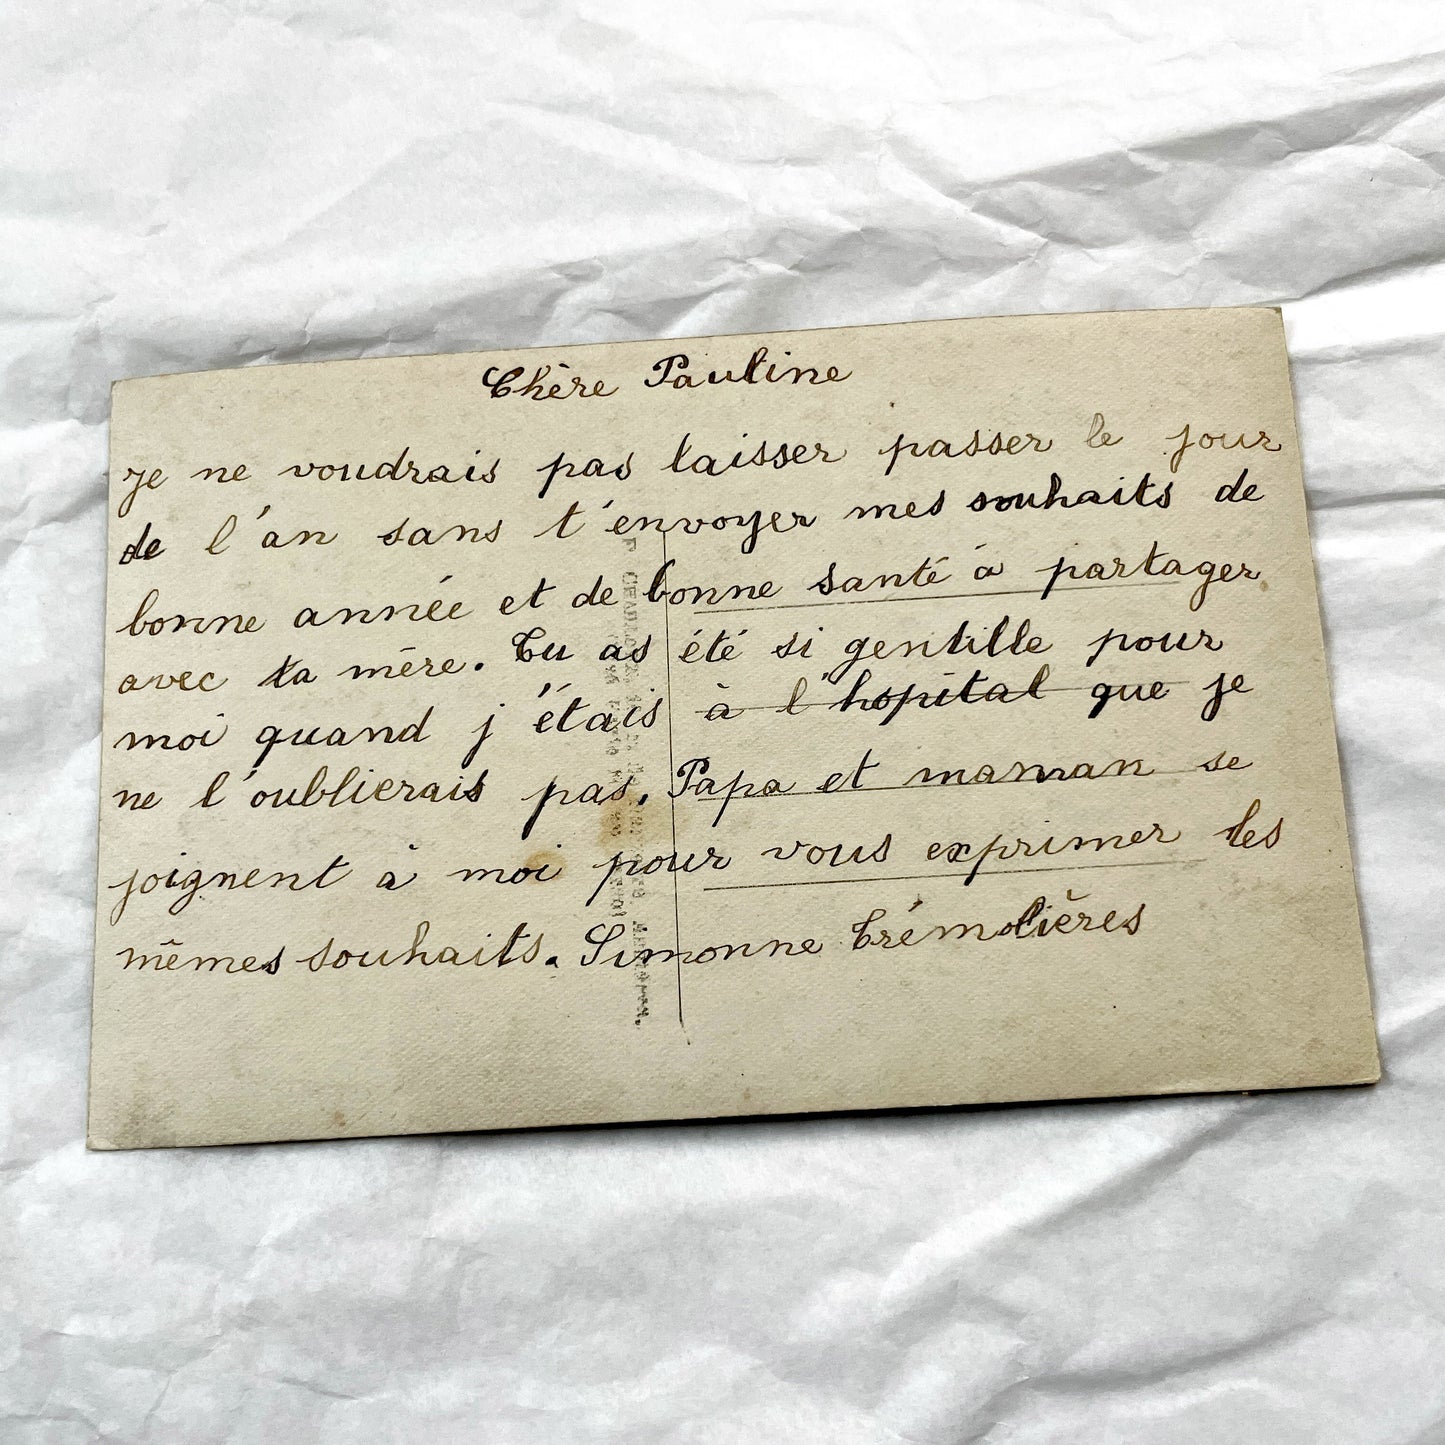 Chère Pauline
Je ne voudrais pas laisser passer le jour
de l'an sans t'envoyer mes souhaits de
bonne année et de bonne santé à partager
avec ta mère. Tu as été si gentille pour
moi quand j'étais à l'hopital que je
ne l'oublierais pas. Papa et maman se
joignent à moi pour vous exprimer les
mêmes souhaits. Simonne Trémolières